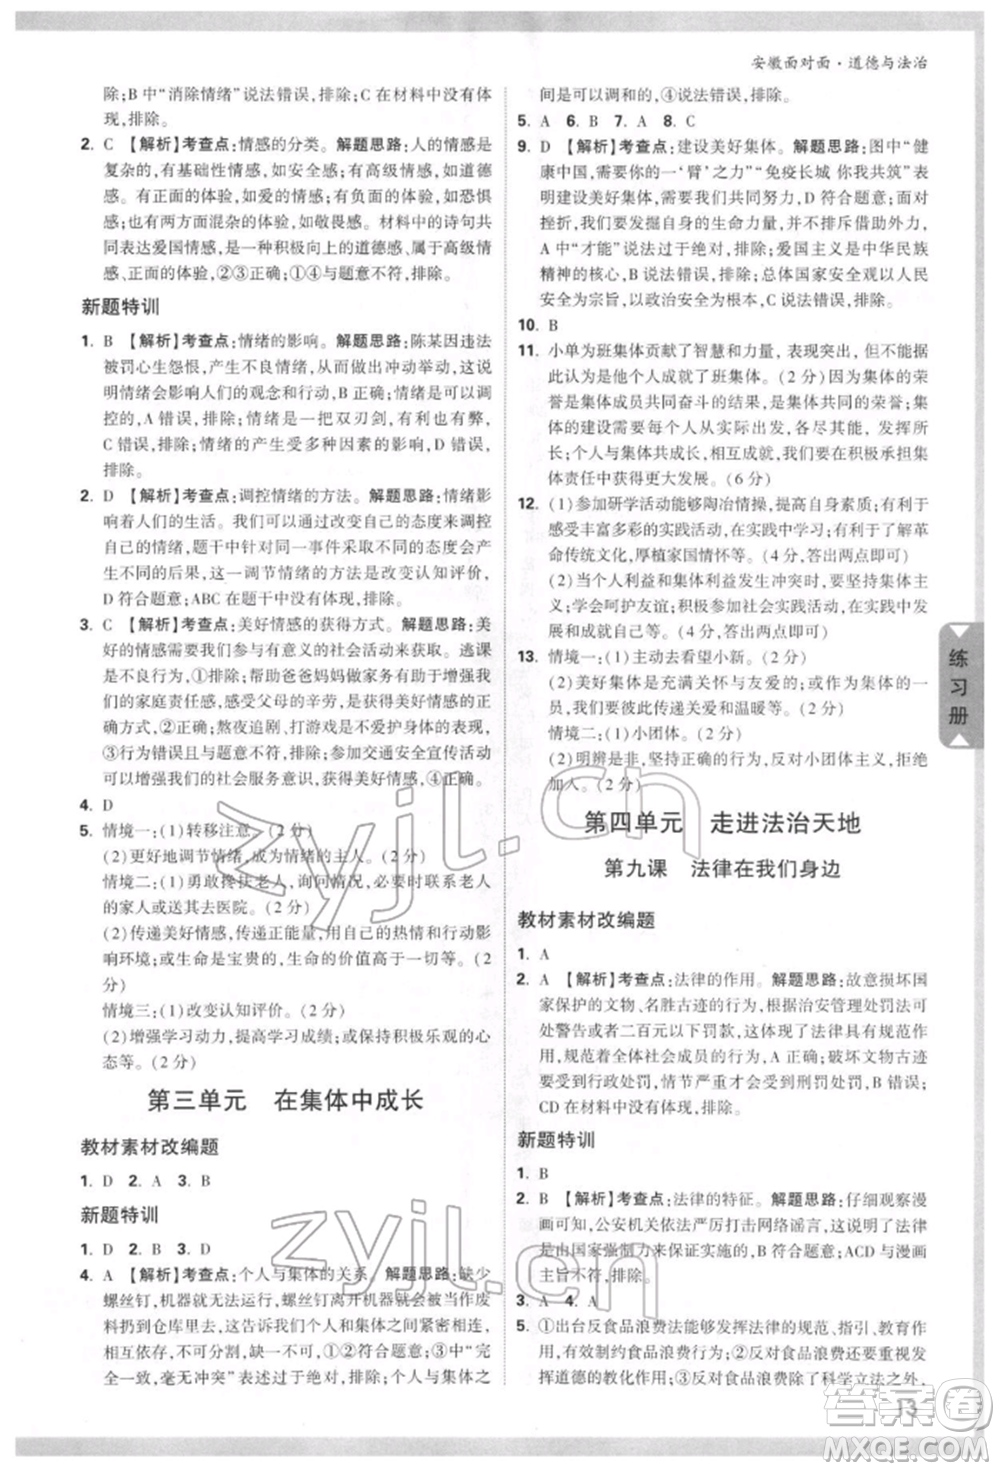 安徽面对面·道德与法治
除;B中“消除情绪”说法错误,排除;C在材料中没有体
现,排除。
2. C 【解析】考查点:情感的分类。解题思路:人的情感是
复杂的,有基础性情感,如安全感;有高级情感,如道德
感。有正面的体验,如爱的情感;有负面的体验,如恐惧
感;也有两方面混杂的体验,如敬畏感。材料中的诗句共
同表达爱国情感,是一种积极向上的道德感,属于高级情
感、正面的体验,②③正确;①④与题意不符,排除。
新题特训
1. B 【解析】考查点:情绪的影响。解题思路:陈某因违法
被罚心生怨恨,产生不良情绪,从而做出冲动举动,这说
明情绪会影响人们的观念和行动,B正确;情绪是可以调
控的,A错误,排除;情绪是一把双刃剑,有利也有弊,
C错误,排除;情绪的产生受多种因素的影响,D错误,
排除。
2. D 【解析】考查点:调控情绪的方法。解题思路:情绪影
响着人们的生活。我们可以通过改变自己的态度来调控
自己的情绪,题干中针对同一事件采取不同的态度会产
生不同的后果,这一调节情绪的方法是改变认知评价,
D符合题意;ABC在题干中没有体现,排除。
3. C 【解析】考查点:美好情感的获得方式。解题思路:美
好的情感需要在有意义的社会活动中获得。逃课
是不良行为,①排除;帮助爸爸妈妈做家务,可以增强我
们的家庭责任感,感受父母的辛劳,有利于获得美好情
感,②正确;熬夜追剧、打游戏是不爱护身体的表现,
③行为错误且与题意不符,排除;积极参加志愿服务活动
可以增强我们的社会服务意识,获得美好情感,④正确。
4. D
5. 情境一:(1)转移注意。(2分)
(2)更好地调节情绪,成为情绪的主人。(2分)
情境二:(1)勇敢搀扶老人,询问情况,必要时联系老人
的家人或者送其去医院。(2分)
(2)传递美好情感,传递正能量,用自己的热情和行动影
响环境;或生命是宝贵的,引导人们关爱生命等。(2
分)
情境三:(1)改变认知评价。(2分)
(2)增强学习动力,提高学习成绩;或保持积极乐观的心
态等。(2分)
第三单元 在集体中成长
教材素材改编题
1. D 2. A 3. B
新题特训
1. D 2. B 3. D
4. A 【解析】考查点:个人与集体的关系。解题思路:缺少
螺丝钉,机器就无法运行,螺丝钉离开机器就会被当作废
料扔到仓库里去,这告诉我们个人和集体之间紧密相连、
不可分割,①②符合题意;③中“个人的作用大于集体的作
用”、“毫无冲突”过于绝对,排除;个人与集体之
间是可以调和的,④说法错误,排除。
5. A 6. B 7. A 8. C
9. D 【解析】考查点:建设美好集体。解题思路:图中“健
康中国,需要你的一‘臂’之力”“免疫长城 你我共筑”表
明建设美好集体,需要大家共同努力,D符合题意;面对
挫折,我们要发掘自身的生命力量,并非选择放弃,
A中“才能”说法过于绝对,排除;爱国主义是中华民族
精神的核心,B说法错误,排除;总体国家安全观以人民
安全为宗旨,以政治安全为根本,C说法错误,排除。
10. B
11. 小单为班集体贡献了智慧和力量,表现突出,但不能因
此认为是他个人成就了班集体。(2分)因为集体的荣
誉是集体成员共同奋斗的结果,是集体共同的荣誉;集
体的建设需要每个人从实际出发,各尽所能,发挥所
长;个人与集体共同成长、相互成就,我们要在承担集
体责任中获得发展。(6分)
12. (1)参加研学活动能够陶冶情操,提高自身素质;有利于
感受丰富多彩的实践活动,在实践中学习;有利于了解革
命传统文化,厚植家国情怀等。(4分,答出两点即可)
(2)当个人利益和集体利益发生冲突时,要坚持集体主
义;学会呵护友谊;积极参加社会实践活动,在活动中
成长等。(4分,答出两点即可)
13. 情境一:(1)主动去看望小新。(2分)
(2)美好集体是充满关怀与友爱的;在集体中,我们要
彼此传递关爱和温暖等。(2分)
情境二:(1)小团体。(2分)
(2)明辨是非、坚持正确的行为,不盲目跟从,拒绝
加入。(2分)
第四单元 走进法治天地
第九课 法律在我们身边
教材素材改编题
1. A
2. A 【解析】考查点:法律的作用。解题思路:故意损坏国
家保护的文物、名胜古迹的行为,根据治安管理处罚法可
处警告或者二百元以下罚款,这表明了法律具有规范作
用,能够规范社会成员的行为,A正确;破坏文物行为
要受到行政处罚,情节特别严重才会受到刑罚处罚,B错误;
CD在材料中没有体现,排除。
新题特训
1. B
2. B 【解析】考查点:法律的特征。解题思路:仔细观察漫
画可知,公安机关依法严厉打击网络谣言,这表明法律
是由国家强制力来保证实施的,B符合题意;ACD与漫画
主旨不符,排除。
3. A 4. A
5. ①出台反食品浪费法能够发挥法律的规范、指引、教育作
用,有效制约食品浪费行为;②反对食品浪费需要不断
发挥道德的教化作用;③反食品浪费除了科学立法之外,
13
练习册
zyjl.cn
zyjl.cn
答案圈
MXQE.COM